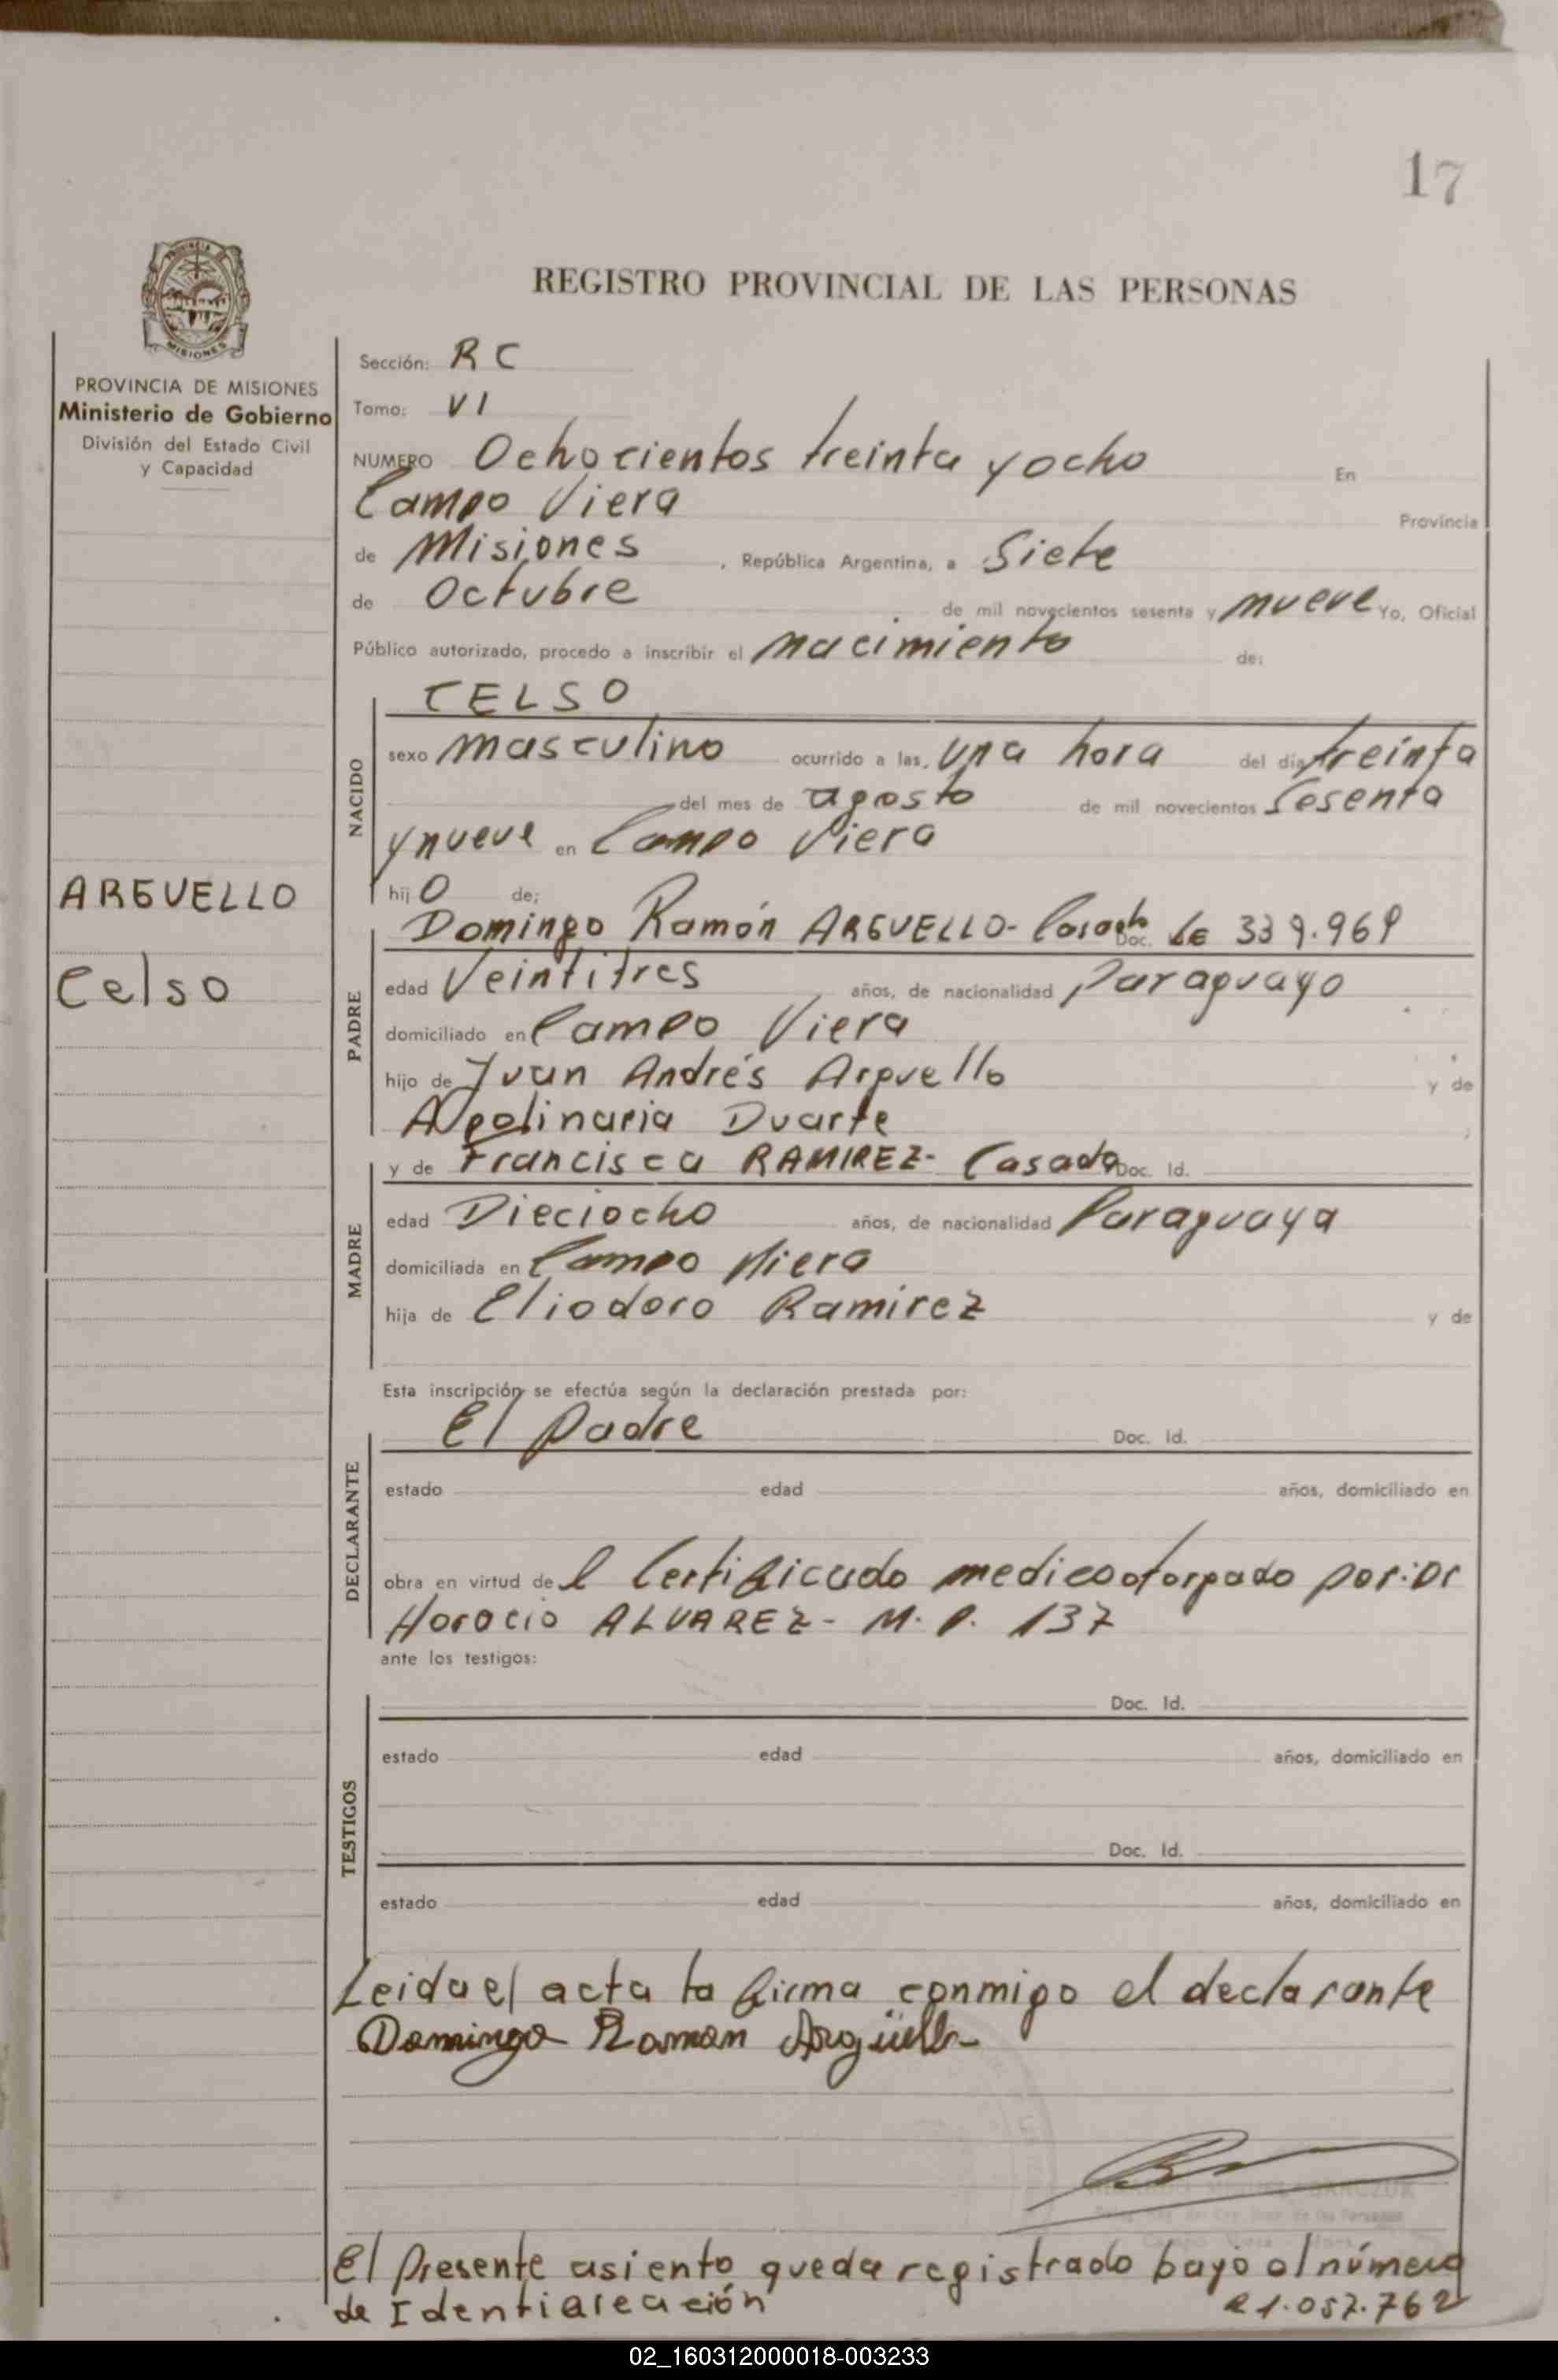 17
REGISTRO PROVINCIAL DE LAS PERSONAS
MISIONES
PROVINCIA DE MISIONES
Ministerio de Gobierno
División del Estado Civil
y Capacidad
ARGUELLO
Celso
Sección: RC
Tomo: VI
NUMERO Ochocientos treinta y ocho En
Campo Viera Provincia
de Misiones, República Argentina, a Siete
de Octubre de mil novecientos sesenta y nueve Yo, Oficial
Público autorizado, procedo a inscribir el nacimiento de:
NACIDO
CELSO
sexo masculino ocurrido a las, una hora del día treinta
del mes de agosto de mil novecientos sesenta
y nueve en Campo Viera
hijo de:
PADRE
Domingo Ramón ARGUELLO- Casado Doc. LE 339.969
edad Veintitres años, de nacionalidad Paraguayo
domiciliado en Campo Viera
hijo de Juan Andrés Arguello y de
Apolinaria Duarte
MADRE
y de Francisca RAMIREZ- Casada Doc. Id.
edad Dieciocho años, de nacionalidad Paraguaya
domiciliada en Campo Viera
hija de Eliodoro Ramirez y de
Esta inscripción se efectúa según la declaración prestada por:
DECLARANTE
El padre Doc. Id.
estado edad años, domiciliado en
obra en virtud del Certificado medico otorgado por: Dr
Horacio ALVAREZ- M. P. 137
ante los testigos:
TESTIGOS
Doc. Id.
estado edad años, domiciliado en
Doc. Id.
estado edad años, domiciliado en
Leida el acta la firma conmigo el declarante
Domingo Ramon Argüello
El presente asiento queda registrado bajo el número
de Identiaicación 21.057.762
02_160312000018-003233